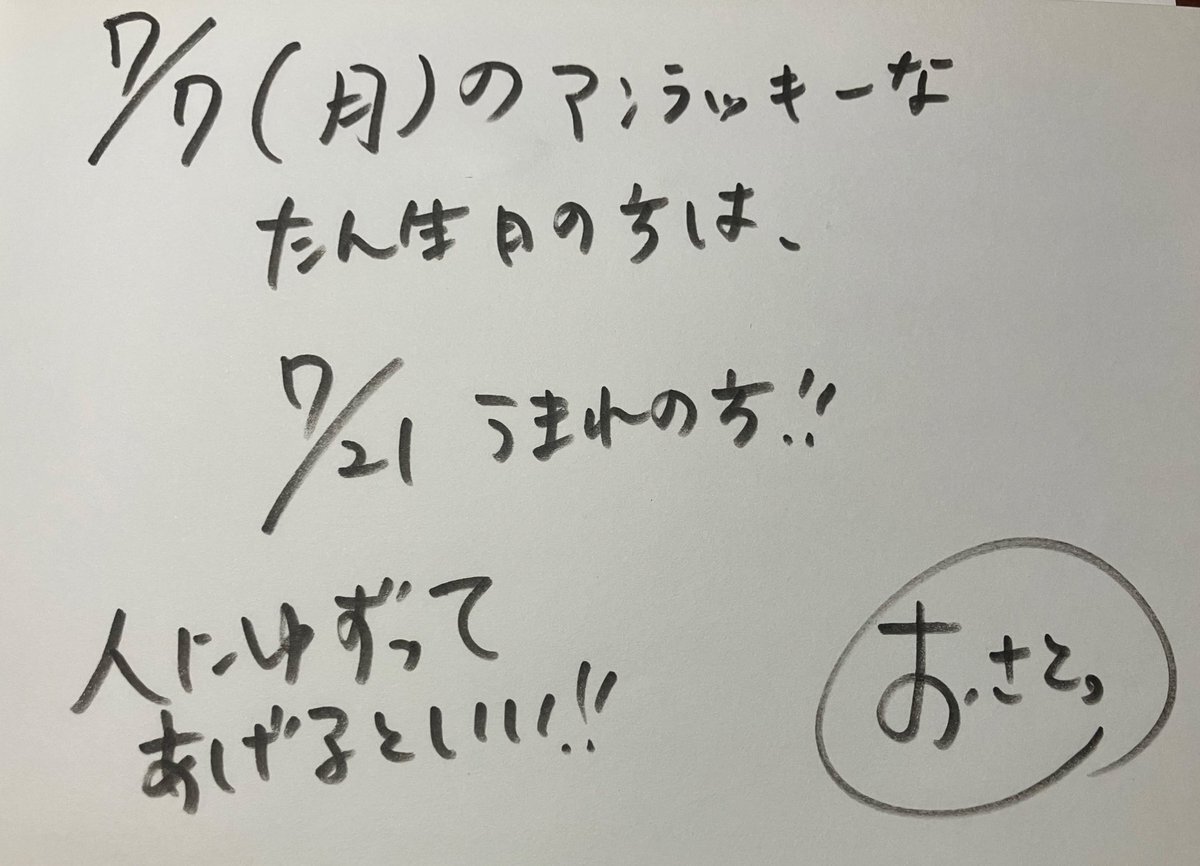 7/7(月)のアンラッキーな
たん生日の方は、
7/21 うまれの方!!
人にゆずって
あげるといい!!
お、さとっ